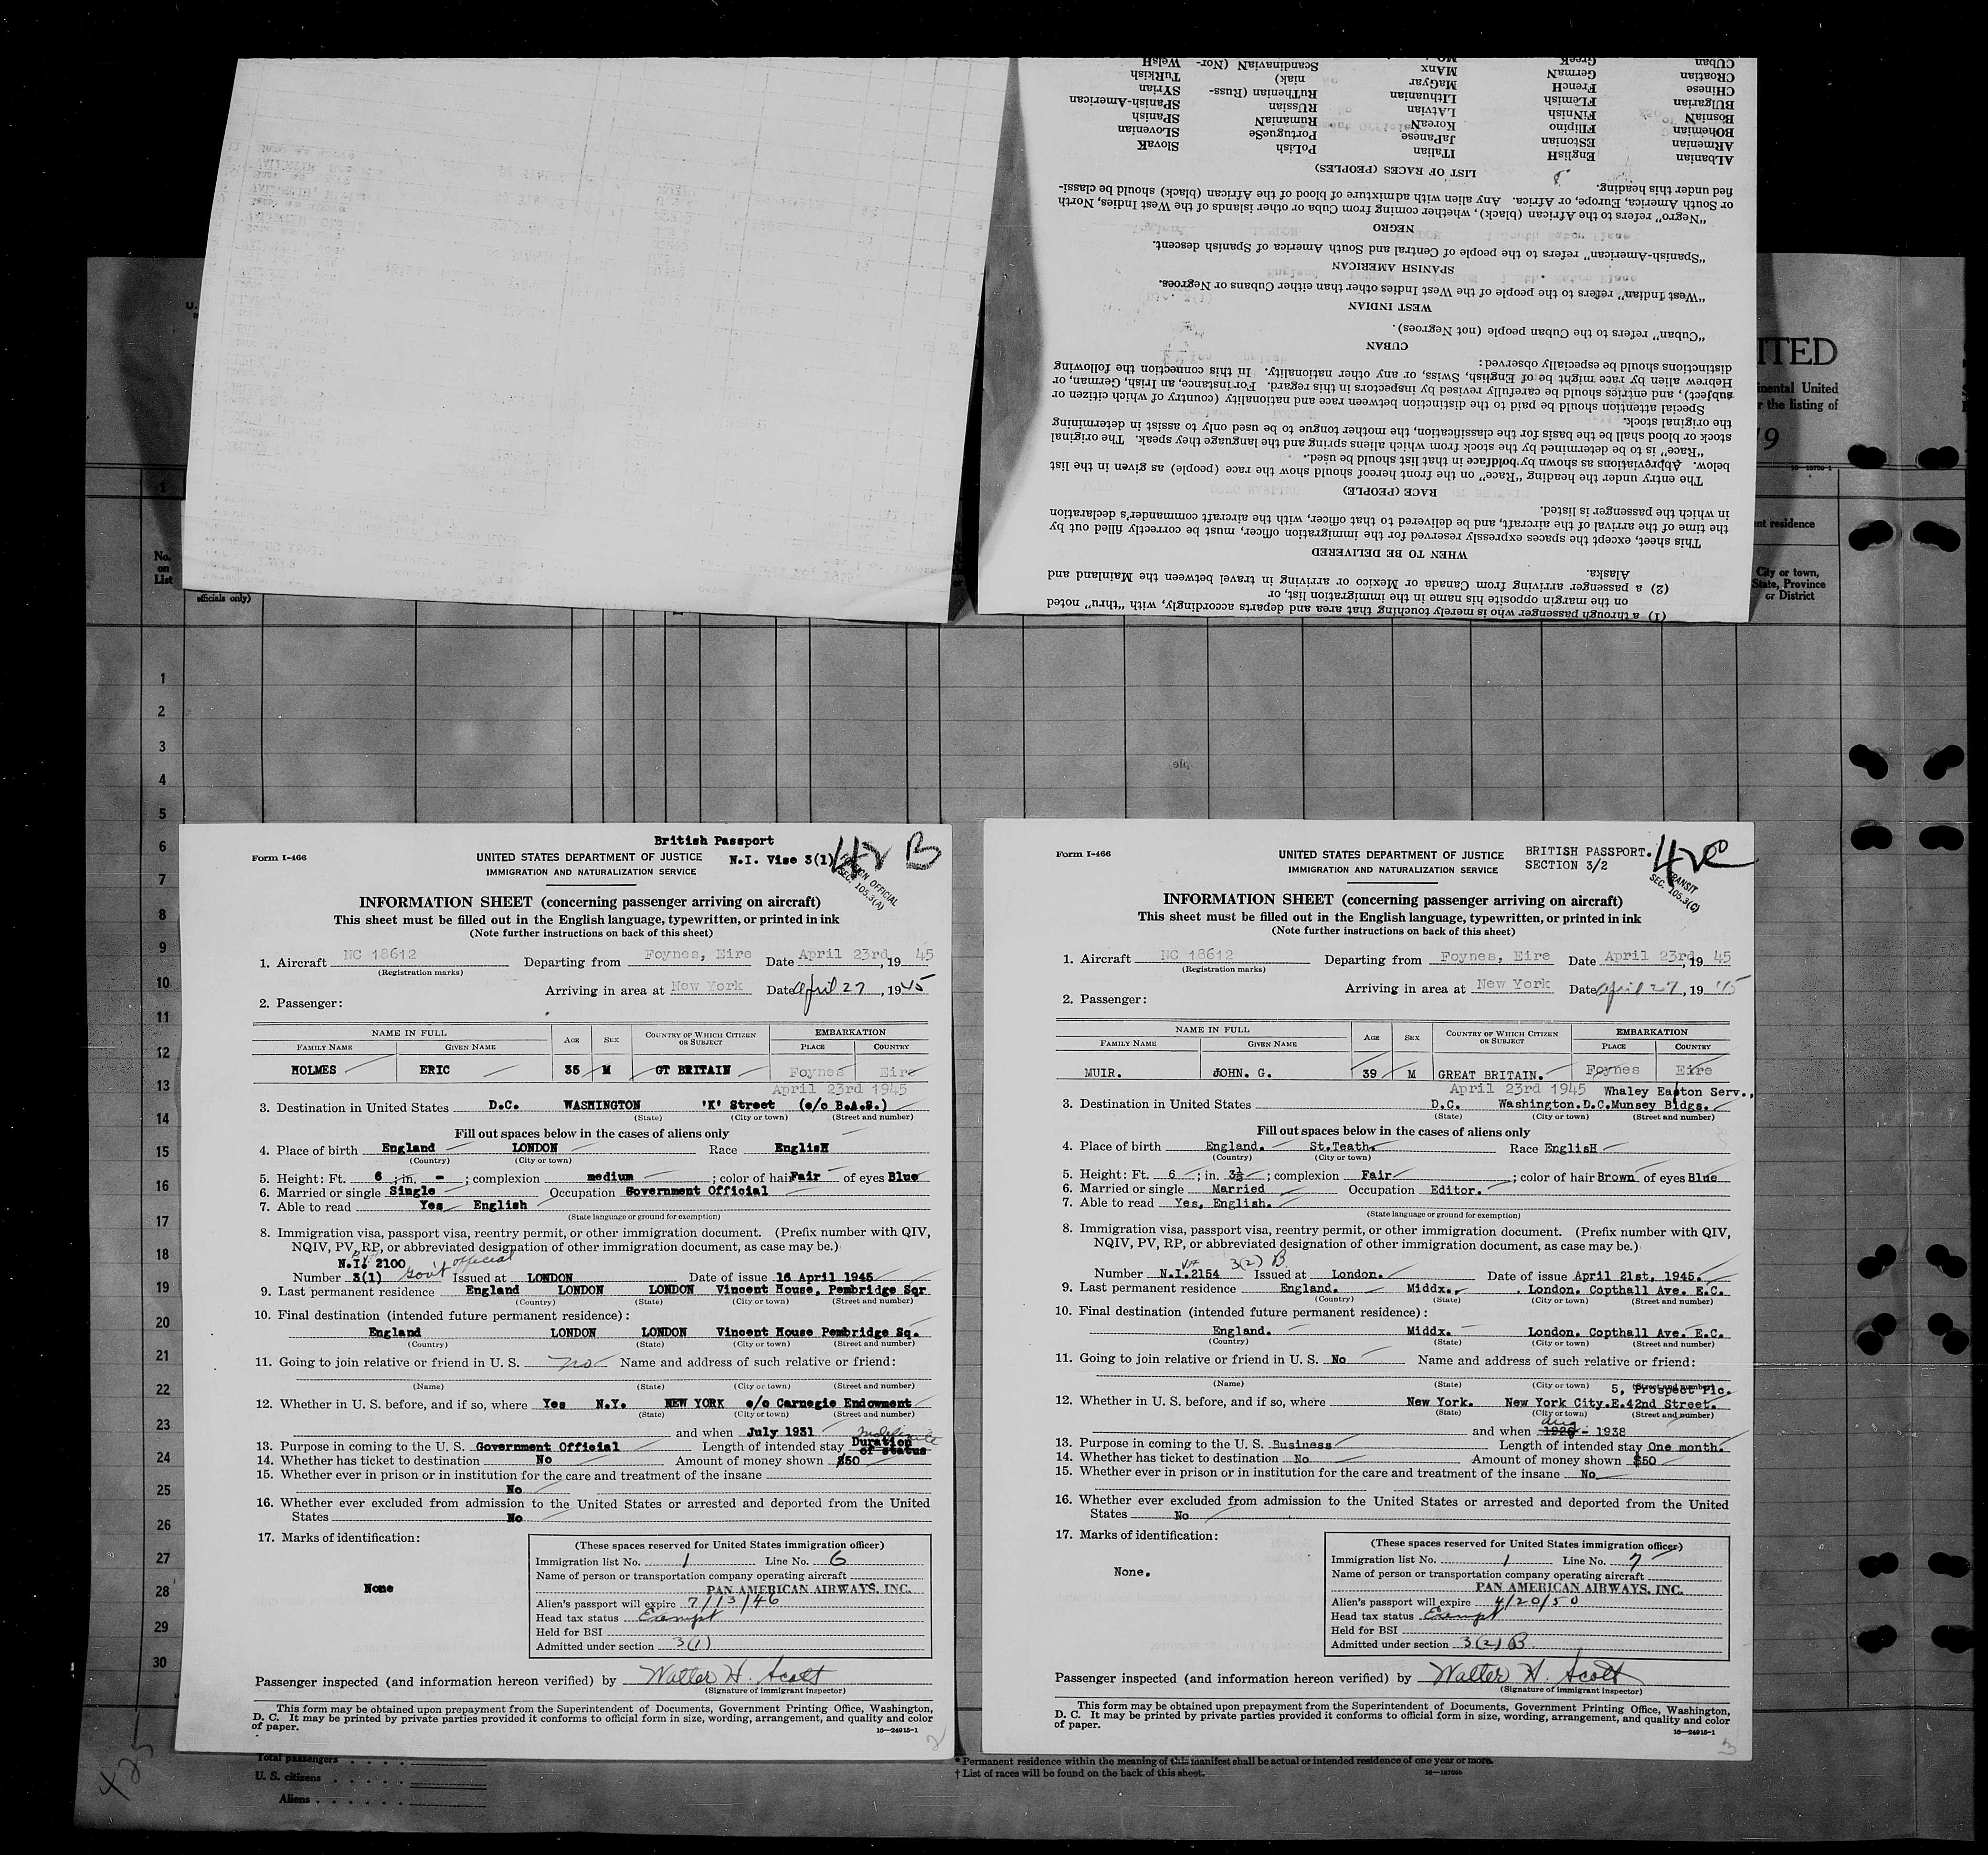 ALbanian EnglisH ITalian PoLish SlovaK
ARmenian EStonian JaPanese PortugueSe SLOvenian
BOhemian FIlipino KoreaN RUmaniaN SPanish
BOsniaN FiNnish LAtvian RUSsian SPanish-American
BUlgarian FLemish LIthuanian RuThenian (Russ- SYrian
CHinese FrencH MaGyar niak) TuRkish
CRoatian GermaN MAnx Scandinavian (Nor- WelsH
CUban GreeK
LIST OF RACES (PEOPLES)
"Negro" refers to the African (black), whether coming from Cuba or other islands of the West Indies, North
or South America, Europe, or Africa. Any alien with admixture of blood of the African (black) should be classi-
fied under this heading.
NEGRO
"Spanish-American" refers to the people of Central and South America of Spanish descent.
SPANISH AMERICAN
"West Indian" refers to the people of the West Indies other than either Cubans or Negroes.
WEST INDIAN
"Cuban" refers to the Cuban people (not Negroes).
CUBAN
Special attention should be paid to the distinction between race and nationality (country of which citizen or
subject), and entries should be carefully revised by inspectors in this regard. For instance, an Irish, German, or
Hebrew alien by race might be of English, Swiss, or any other nationality. In this connection the following
distinctions should be especially observed:
"Race" is to be determined by the stock from which aliens spring and the language they speak. The original
stock or blood shall be the basis for the classification, the mother tongue to be used only to assist in determining
the original stock.
The entry under the heading "Race" on the front hereof should show the race (people) as given in the list
below. Abbreviations as shown by boldface in that list should be used.
RACE (PEOPLE)
This sheet, except the spaces expressly reserved for the immigration officer, must be correctly filled out by
the time of the arrival of the aircraft, and be delivered to that officer, with the aircraft commander's declaration
in which the passenger is listed.
WHEN TO BE DELIVERED
(1) a through passenger who is merely touching that area and departs accordingly, with "thru" noted
on the margin opposite his name in the immigration list, or
(2) a passenger arriving from Canada or Mexico or arriving in travel between the Mainland and
Alaska.
ITED
inental United
r the listing of
19
nt residence
City or town,
State, Province
or District
No.
on
List
officials only)
1
2
3
4
5
6
7
8
9
10
11
12
13
14
15
16
17
18
19
20
21
22
23
24
25
26
27
28
29
30
British Passport
Form I-466
UNITED STATES DEPARTMENT OF JUSTICE N.I. Vise 3(1) B
IMMIGRATION AND NATURALIZATION SERVICE
OFFICIAL
SEC. 105.3(A)
INFORMATION SHEET (concerning passenger arriving on aircraft)
This sheet must be filled out in the English language, typewritten, or printed in ink
(Note further instructions on back of this sheet)
1. Aircraft NC 18612 Departing from Foynes, Eire Date April 23rd, 19 45
(Registration marks)
Arriving in area at New York Date April 27, 1945
2. Passenger:
NAME IN FULL AGE SEX COUNTRY OF WHICH CITIZEN OR SUBJECT EMBARKATION
FAMILY NAME GIVEN NAME PLACE COUNTRY
HOLMES ERIC 35 M GT BRITAIN Foynes Eire
April 23rd 1945
3. Destination in United States D.C. WASHINGTON 'K' Street (c/o B.A.S.)
(State) (City or town) (Street and number)
Fill out spaces below in the cases of aliens only
4. Place of birth England LONDON Race EnglisH
(Country) (City or town)
5. Height: Ft. 6 ; in. - ; complexion medium ; color of hair Fair of eyes Blue
6. Married or single Single Occupation Government Official
7. Able to read Yes English
(State language or ground for exemption)
8. Immigration visa, passport visa, reentry permit, or other immigration document. (Prefix number with QIV,
NQIV, PV, RP, or abbreviated designation of other immigration document, as case may be.)
N.I. 2100
Number 3(1) Gov't official Issued at LONDON Date of issue 16 April 1945
9. Last permanent residence England LONDON LONDON Vincent House, Pembridge Sqr
(Country) (State) (City or town) (Street and number)
10. Final destination (intended future permanent residence):
England LONDON LONDON Vincent House Pembridge Sq.
(Country) (State) (City or town) (Street and number)
11. Going to join relative or friend in U. S. no Name and address of such relative or friend:
(Name) (State) (City or town) (Street and number)
12. Whether in U. S. before, and if so, where Yes N.Y. NEW YORK c/o Carnegie Endowment
(State) (City or town) (Street and number)
and when July 1931 indefinite
13. Purpose in coming to the U. S. Government Official Length of intended stay Duration of status
14. Whether has ticket to destination No Amount of money shown $50
15. Whether ever in prison or in institution for the care and treatment of the insane
No
16. Whether ever excluded from admission to the United States or arrested and deported from the United
States No
17. Marks of identification:
None
(These spaces reserved for United States immigration officer)
Immigration list No. 1 Line No. 6
Name of person or transportation company operating aircraft
PAN AMERICAN AIRWAYS, INC.
Alien's passport will expire 7/13/46
Head tax status Exempt
Held for BSI
Admitted under section 3(1)
Passenger inspected (and information hereon verified) by Walter H. Scott
(Signature of immigrant inspector)
This form may be obtained upon prepayment from the Superintendent of Documents, Government Printing Office, Washington,
D. C. It may be printed by private parties provided it conforms to official form in size, wording, arrangement, and quality and color
of paper.
16—24915-1
2
Form I-466
UNITED STATES DEPARTMENT OF JUSTICE BRITISH PASSPORT.
IMMIGRATION AND NATURALIZATION SERVICE SECTION 3/2
TRANSIT
SEC. 105.3(C)
INFORMATION SHEET (concerning passenger arriving on aircraft)
This sheet must be filled out in the English language, typewritten, or printed in ink
(Note further instructions on back of this sheet)
1. Aircraft NC 18612 Departing from Foynes, Eire Date April 23rd, 19 45
(Registration marks)
Arriving in area at New York Date April 27, 19 45
2. Passenger:
NAME IN FULL AGE SEX COUNTRY OF WHICH CITIZEN OR SUBJECT EMBARKATION
FAMILY NAME GIVEN NAME PLACE COUNTRY
MUIR. JOHN. G. 39 M GREAT BRITAIN. Foynes Eire
April 23rd 1945 Whaley Eaton Serv.,
3. Destination in United States D.C. Washington.D.C.Munsey Bldgs.
(State) (City or town) (Street and number)
Fill out spaces below in the cases of aliens only
4. Place of birth England. St.Teath. Race EnglisH
(Country) (City or town)
5. Height: Ft. 6 ; in. 3½ ; complexion Fair ; color of hair Brown of eyes Blue
6. Married or single Married Occupation Editor.
7. Able to read Yes, English.
(State language or ground for exemption)
8. Immigration visa, passport visa, reentry permit, or other immigration document. (Prefix number with QIV,
NQIV, PV, RP, or abbreviated designation of other immigration document, as case may be.)
3(2) B
Number N.I.2154 Issued at London. Date of issue April 21st, 1945.
9. Last permanent residence England. Middx. London. Copthall Ave. E.C.
(Country) (State) (City or town) (Street and number)
10. Final destination (intended future permanent residence):
England. Middx. London. Copthall Ave. E.C.
(Country) (State) (City or town) (Street and number)
11. Going to join relative or friend in U. S. No Name and address of such relative or friend:
(Name) (State) (City or town) (Street and number)
5, Prospect Plc.
12. Whether in U. S. before, and if so, where New York. New York City.E.42nd Street.
(State) (City or town) (Street and number)
Aug
and when 1926 - 1938
13. Purpose in coming to the U. S. Business Length of intended stay One month.
14. Whether has ticket to destination No Amount of money shown $50
15. Whether ever in prison or in institution for the care and treatment of the insane No
16. Whether ever excluded from admission to the United States or arrested and deported from the United
States No
17. Marks of identification:
None.
(These spaces reserved for United States immigration officer)
Immigration list No. 1 Line No. 7
Name of person or transportation company operating aircraft
PAN AMERICAN AIRWAYS, INC.
Alien's passport will expire 4/20/50
Head tax status Exempt
Held for BSI
Admitted under section 3(2) B
Passenger inspected (and information hereon verified) by Walter H. Scott
(Signature of immigrant inspector)
This form may be obtained upon prepayment from the Superintendent of Documents, Government Printing Office, Washington,
D. C. It may be printed by private parties provided it conforms to official form in size, wording, arrangement, and quality and color
of paper.
16—24915-1
3
425
Total passengers
U. S. citizens
Aliens
* Permanent residence within the meaning of this manifest shall be actual or intended residence of one year or more.
† List of races will be found on the back of this sheet.